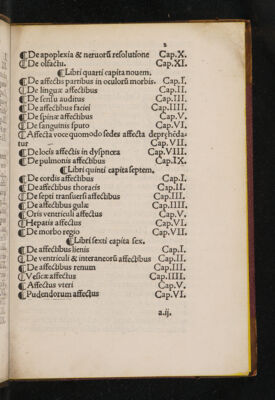 2
¶De apoplexia & neruorū resolutione Cap.X.
¶De olfactu. Cap.XI.
¶Libri quarti capita nouem.
¶De affectis partibus in oculorū morbis. Cap.I.
¶De linguæ affectibus Cap.II.
¶De sensu auditus Cap.III.
¶De affectibus faciei Cap.IIII.
¶De spinæ affectibus Cap.V.
¶De sanguinis sputo Cap.VI.
¶Affecta voce quomodo sedes affecta deprehēda-
tur Cap.VII.
¶De locis affectis in dyspnœa Cap.VIII.
¶De pulmonis affectibus Cap.IX.
¶Libri quinti capita septem.
¶De cordis affectibus Cap.I.
¶De affectibus thoracis Cap.II.
¶De septi transuersi affectibus Cap.III.
¶De affectibus gulæ Cap.IIII.
¶Oris ventriculi affectus Cap.V.
¶Hepatis affectus Cap.VI.
¶De morbo regio Cap.VII.
¶Libri sexti capita sex.
¶De affectibus lienis Cap.I.
¶De ventriculi & interaneorū affectibus Cap.II.
¶De affectibus renum Cap.III.
¶Vesicæ affectus Cap.IIII.
¶Affectus vteri Cap.V.
¶Pudendorum affectus Cap.VI.
a.ij.